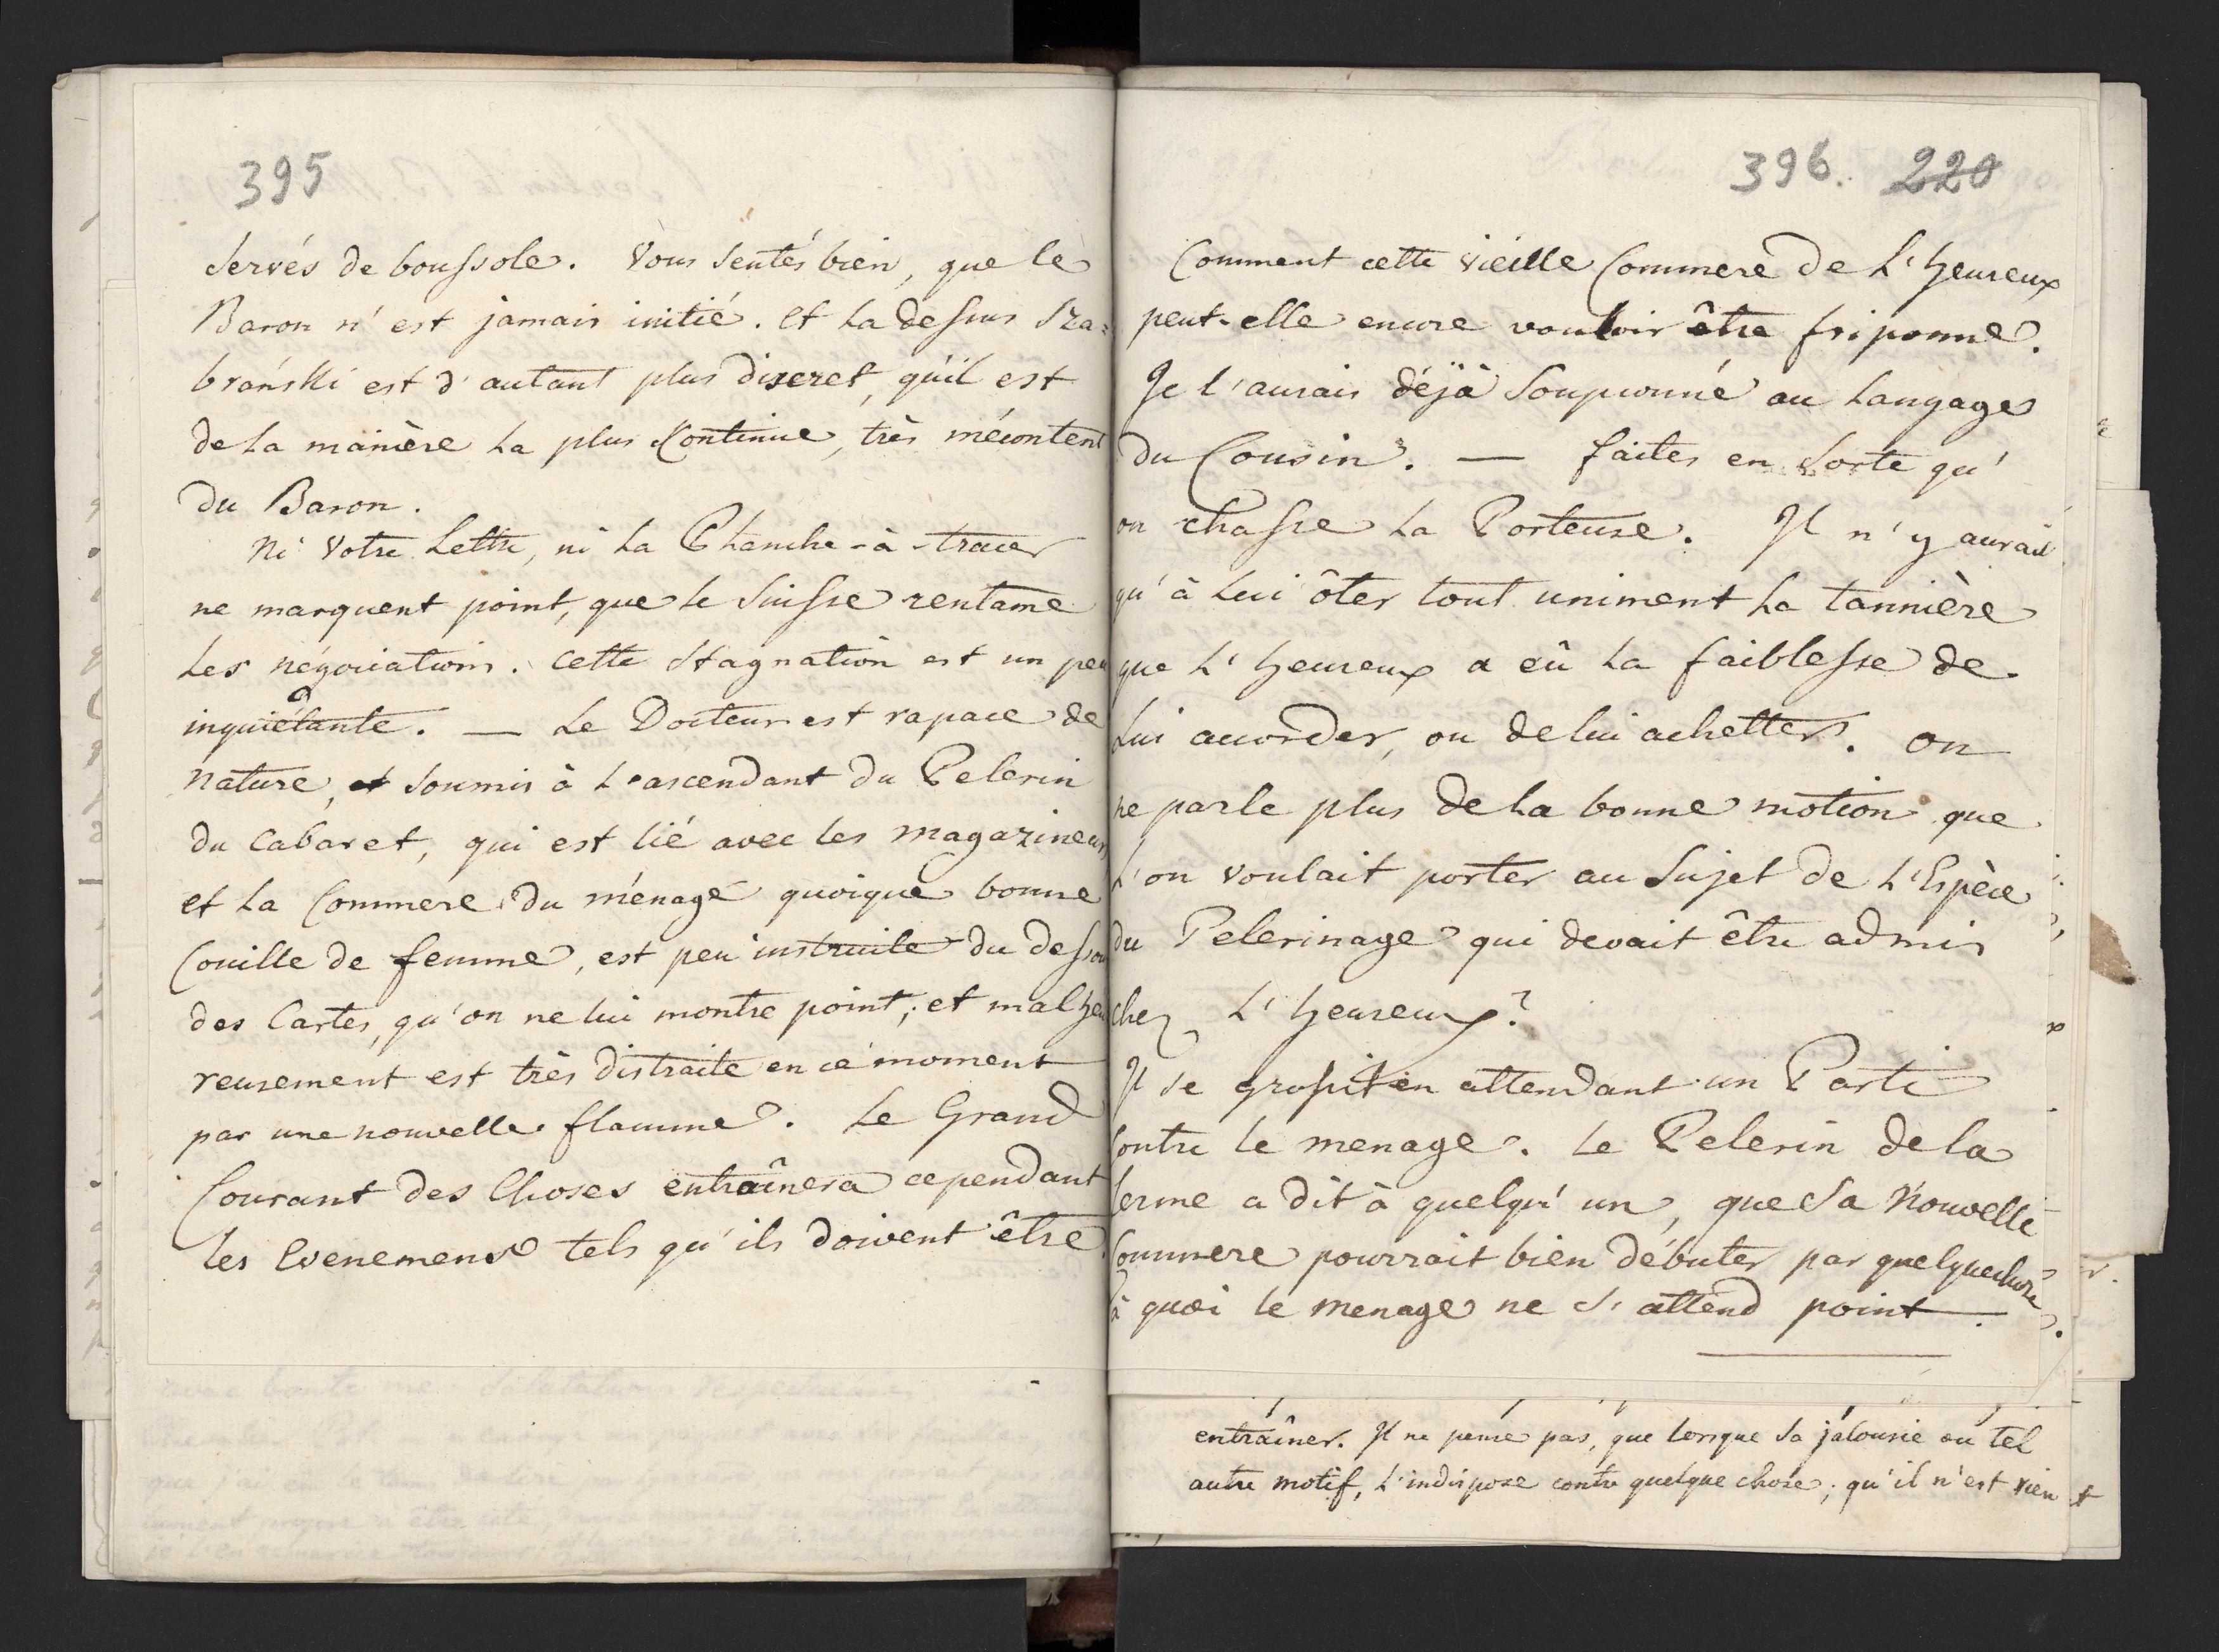 395
servés de boussole. Vous sentés bien, que le
Baron n'est jamais initié. et la dessus Sza=
brański est d'autant plus discret, qu'il est
de la manière la plus continue, très mécontent
du Baron.
Ni votre Lettre, ni la Planche-à-tracer
ne marquent point, que le Suisse rentame
les négociations. cette Stagnation est un peu
inquiétante. — Le Docteur est rapace de
nature, et soumis à l'ascendant du Pelerin
du Cabaret, qui est lié avec les magazineurs
et la Commere du ménage quoique bonne
Couille de femme, est peu instruite du dessou
des Cartes, qu'on ne lui montre point; et malheu
reusement est très distraite en ce moment
par une nouvelle flamme. Le Grand
Courant des Choses entraînera cependant
les Evenemens tels qu'ils doivent être.
396. 220
Comment cette vieille Commere de L'heureux
peut-elle encore vouloir être friponne.
Je l'aurais déjà soupçonné au Langage
du Cousin. — faites en sorte qu'
on chasse la Porteuse. Il n'y aurait
qu'à lui ôter tout uniment la tannière
que L'heureux a eû la faiblesse de
lui accorder, ou de lui achetter. on
ne parle plus de la bonne motion que
l'on voulait porter au sujet de l'Espèce
du Pelerinage qui devait être admis
chez L'heureux?
Il se grossit en attendant un Parti
contre le menage. Le Pelerin de la
ferme a dit à quelqu'un, que sa Nouvelle
Commere pourrait bien débuter par quelquechose
à quoi le menage ne s'attend point.
entraîner. Il ne pense pas, que lorsque sa jalousie ou tel
autre motif, l'indispose contre quelque chose; qu'il n'est rien